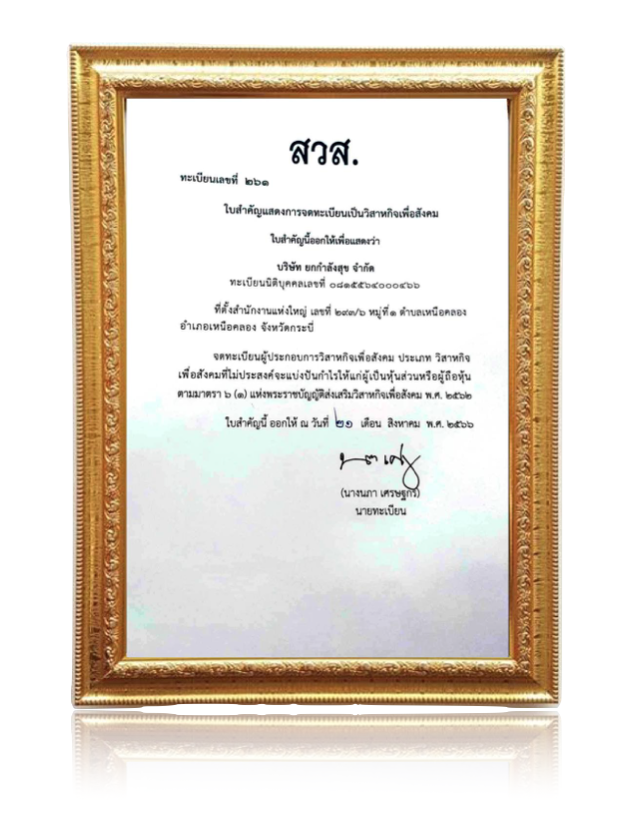 สวส.
ทะเบียนเลขที่ ๒๖๑
ใบสำคัญแสดงการจดทะเบียนเป็นวิสาหกิจเพื่อสังคม
ใบสำคัญนี้ออกให้เพื่อแสดงว่า
บริษัท ยกกำลังสุข จำกัด
ทะเบียนนิติบุคคลเลขที่ ๐๘๑๕๕๖๔๐๐๐๔๖๖
ที่ตั้งสำนักงานแห่งใหญ่ เลขที่ ๒๙๓/๖ หมู่ที่ ๑ ตำบลเหนือคลอง
อำเภอเหนือคลอง จังหวัดกระบี่
จดทะเบียนผู้ประกอบการวิสาหกิจเพื่อสังคม ประเภท วิสาหกิจ
เพื่อสังคมที่ไม่ประสงค์จะแบ่งปันกำไรให้แก่ผู้เป็นหุ้นส่วนหรือผู้ถือหุ้น
ตามมาตรา ๖ (๑) แห่งพระราชบัญญัติส่งเสริมวิสาหกิจเพื่อสังคม พ.ศ. ๒๕๖๒
ใบสำคัญนี้ ออกให้ ณ วันที่ ๒๑ เดือน สิงหาคม พ.ศ. ๒๕๖๖
(นางนภา เศรษฐกร)
นายทะเบียน